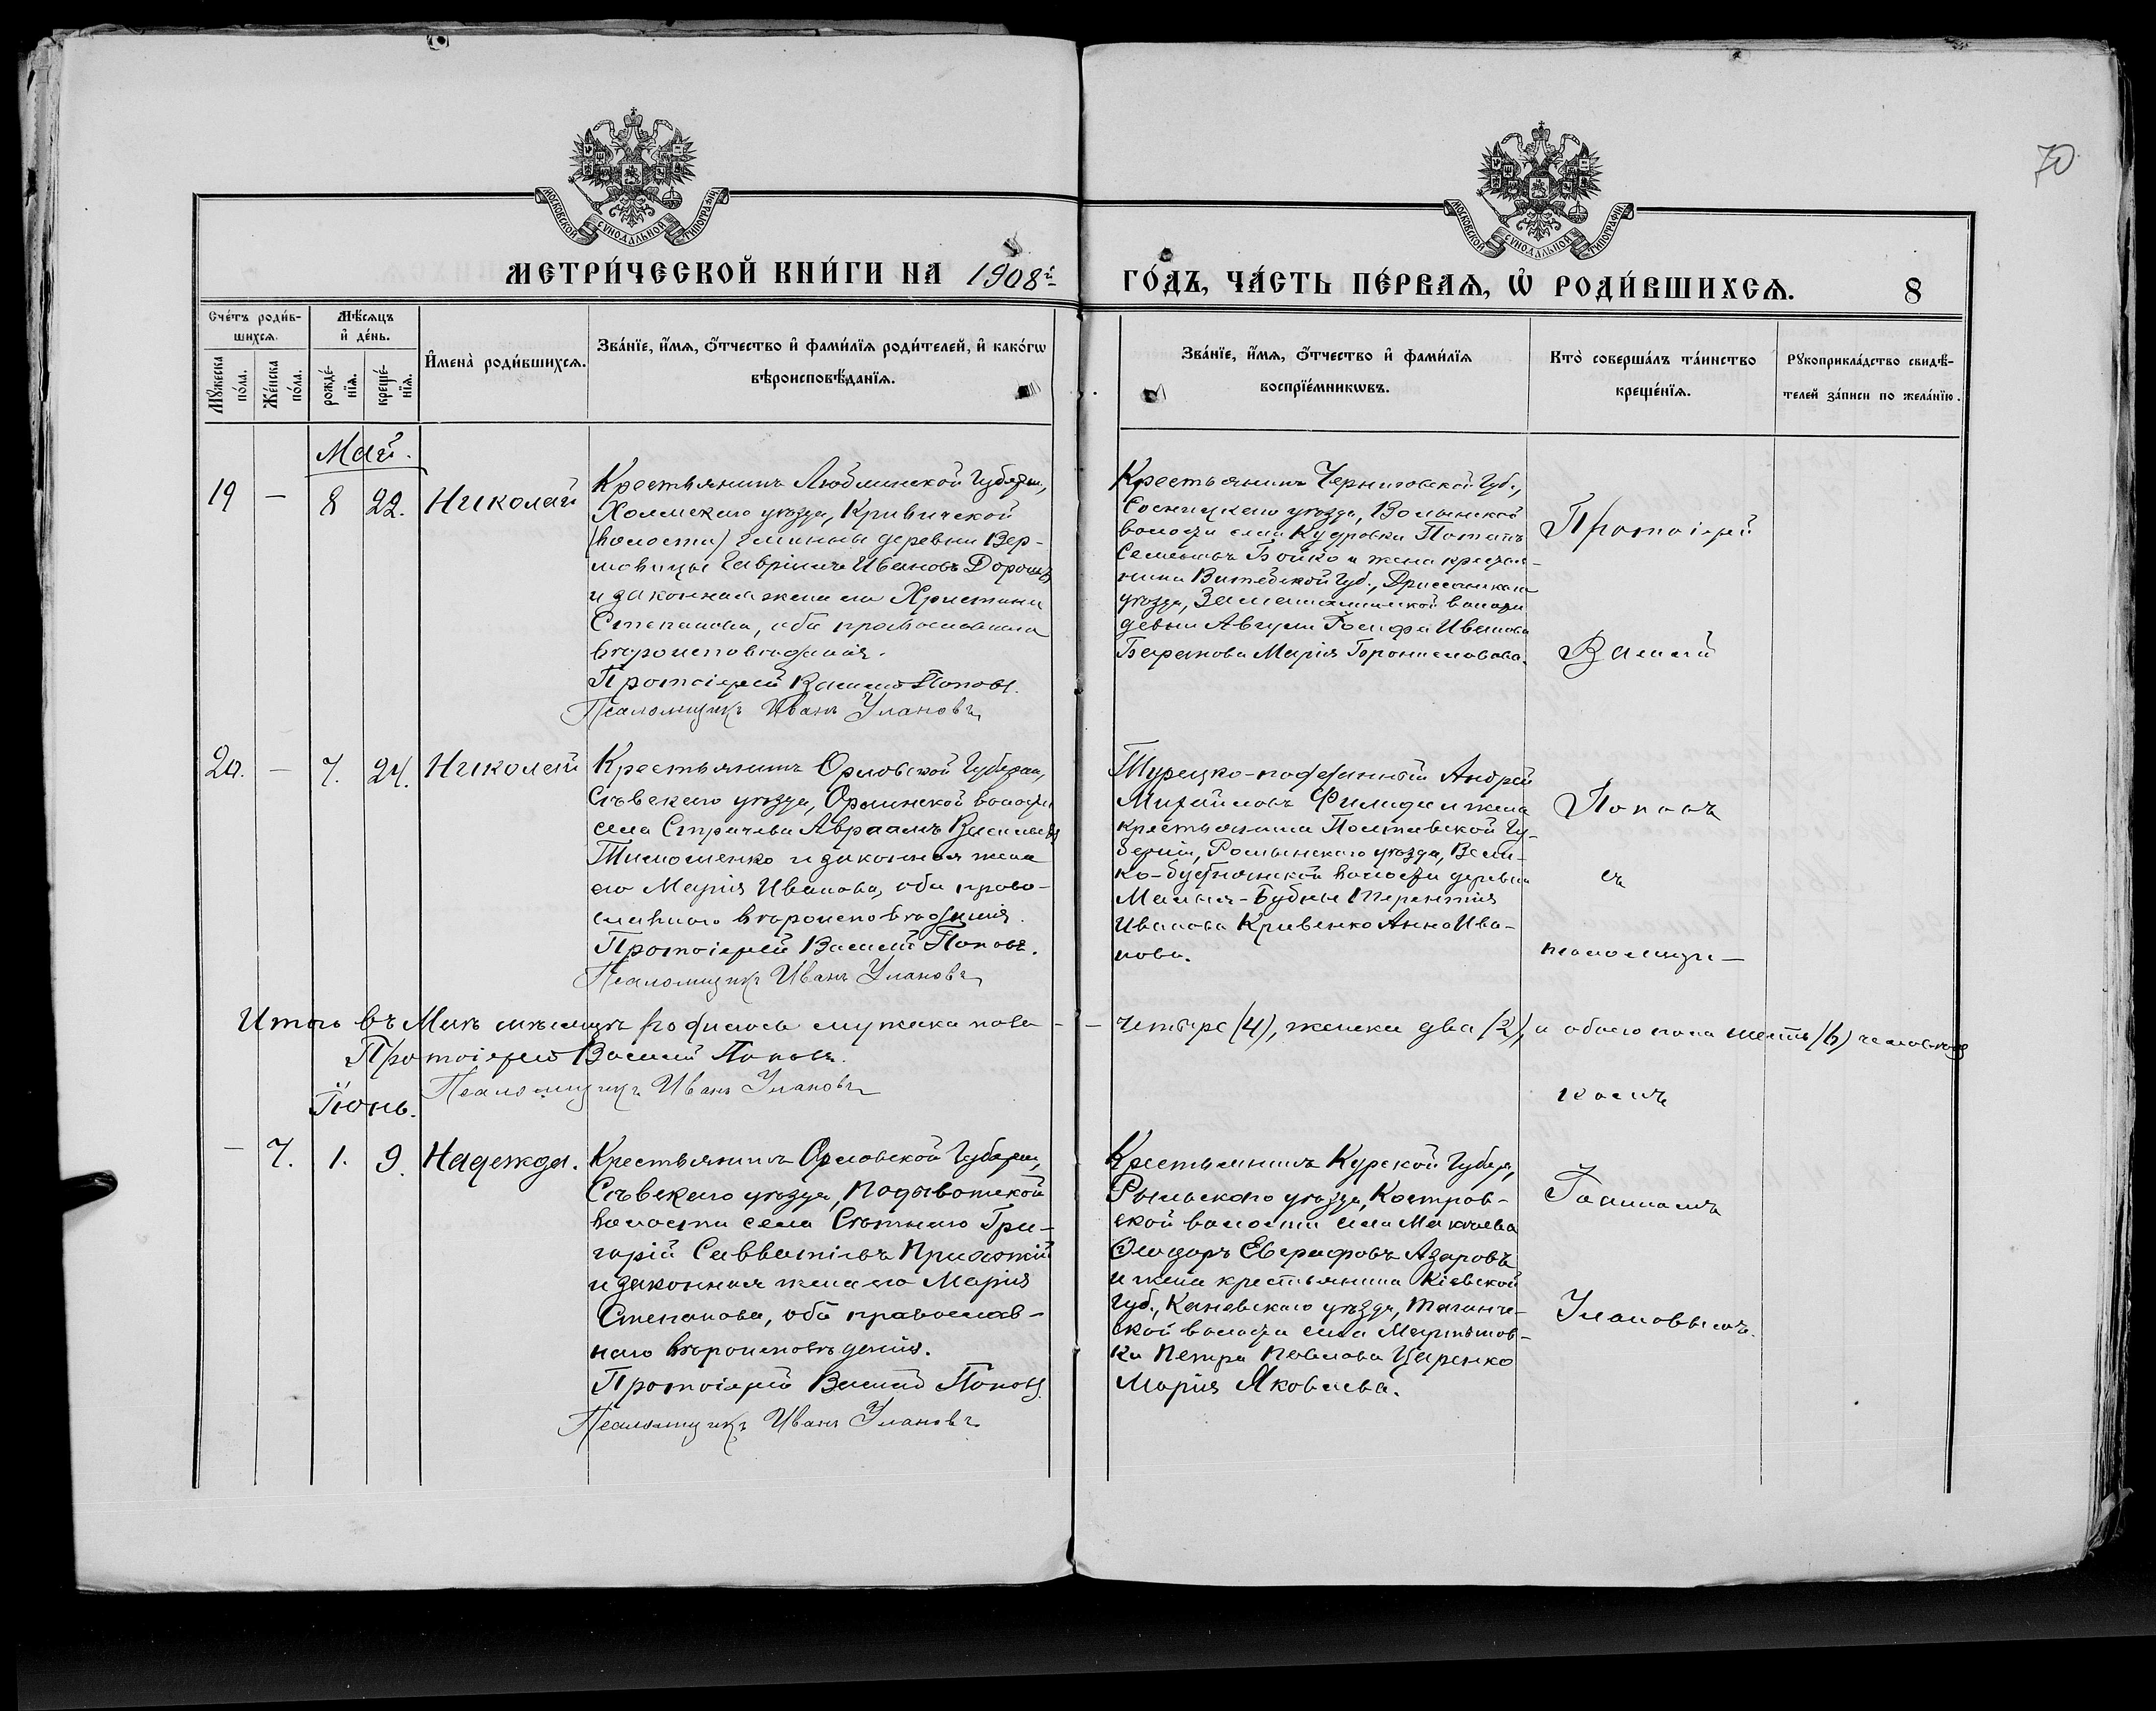 70
МОСКОВСКОЙ СѴНОДАЛЬНОЙ ТИПОГРАФІИ
МОСКОВСКОЙ СѴНОДАЛЬНОЙ ТИПОГРАФІИ
МЕТРИ́ЧЕСКОЙ КНИ́ГИ НА 1908й
ГО́ДЪ, ЧА́СТЬ ПЕ́РВАѦ, Ѡ҆ РОДИ́ВШИХСѦ. 8
Сче́тъ роди́в-
шихсѧ.
Мꙋ́жеска по́ла.
Же́нска по́ла.
Мѣ́сяцъ
и҆ де́нь.
рожде́-
нїѧ.
креще́-
нїѧ.
И҆мена̀ роди́вшихсѧ.
Зва́нїе, и҆́мѧ, ѻ҆́тчество и҆ фами́лїѧ роди́телей, и҆ како́гѡ
вѣроисповѣ́данїѧ.
Зва́нїе, и҆́мѧ, ѻ҆́тчество и҆ фами́лїѧ
воспрїе́мникѡвъ.
Кто̀ соверша́лъ та́инство
креще́нїѧ.
Рꙋкоприкла́дство свидѣ́-
телей за́писи по жела́нїю.
Май.
19 — 8 22. Николай
Крестьянинъ Люблинской Губерн.,
Холмскаго уѣзда, Кривичской
(волости) гмины деревни Вер-
мовицы Гавріилъ Ивановъ Дорошъ
и законная жена его Христина
Степанова, оба православнаго
вѣроисповѣданія.
Протоіерей Василій Поповъ.
Псаломщикъ Иванъ Улановъ
Крестьянинъ Черниговской Губ.,
Сосницкаго уѣзда, Волынской
волости села Кудровки Потапъ
Семеновъ Бойко и жена крестья-
нина Витебской Губ., Дриссенскаго
уѣзда, волости
Іосифа Иванова
Баранова Марія Брониславова.
Протоіерей
Василій
20. — 7. 24. Николай
Крестьянинъ Орловской Губерніи,
Сѣвскаго уѣзда, Орлинской волости
села Страчева Авраамъ Васильевъ
Тимошенко и законная жена
его Марія Иванова, оба право-
славнаго вѣроисповѣданія.
Протоіерей Василій Поповъ.
Псаломщикъ Иванъ Улановъ
Турецко-подданный Андрей
Михайловъ Филиди и жена
крестьянина Полтавской Гу-
берніи, Роменскаго уѣзда, Вели-
ко-бубновской волости деревни
Малыя-Бубны Терентія
Иванова Кривенко Анна Ива-
нова.
Поповъ
съ
псаломщи-
Итого въ Маѣ мѣсяцѣ родилось мужска пола - - четыре (4), женска два (2), и обоего пола шесть (6) человѣкъ
Протоіерей Василій Поповъ.
Псаломщикъ Иванъ Улановъ
комъ
Іюнь.
— 7. 1. 9. Надежда.
Крестьянинъ Орловской Губерніи,
Сѣвскаго уѣзда, Подывотской
волости села Сѣтнаго Гри-
горій Савватіевъ Пригожій
и законная жена его Марія
Степанова, оба православ-
наго вѣроисповѣданія.
Протоіерей Василій Поповъ.
Псаломщикъ Иванъ Улановъ
Крестьянинъ Курской Губерн.,
Рыльскаго уѣзда, Костров-
ской волости села Макѣева
Ѳеодоръ Евграфовъ Азаровъ
и жена крестьянина Кіевской
Губ., Каневскаго уѣзда, Таганче-
ской волости села Мартынов-
ки Петра Павлова Царенко
Марія Яковлева.
Іоанномъ
Улановымъ.